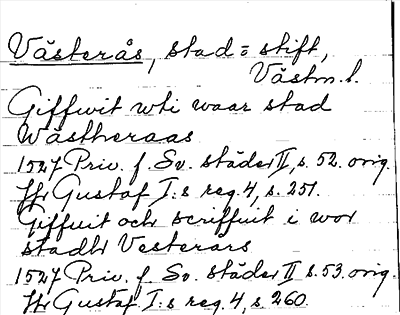 Västerås, stad = stift,
Västm. l.
Giffwit wti waar stad
Wästheraas
1527 Priv. f. Sv. städer II, s. 52. orig.
Jfr Gustaf I:s reg. 4, s. 251.
Giffuit och scriffuit i wor
stadh Vesterars
1527 Priv. f. Sv. städer II s. 53. orig.
Jfr Gustaf I:s reg. 4, s. 260.